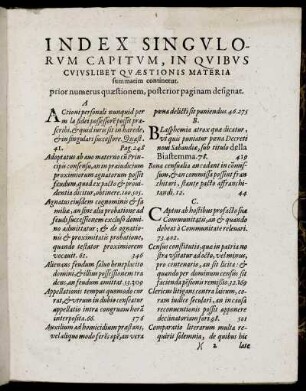 INDEX SINGVLO-
RVM CAPITVM, IN QVIBVS
CVIVSLIBET QVÆSTIONIS MATERIA
summatim continetur.
prior numerus quæstionem, posterior paginam designat.
A
Actioni personali nunquid per
malæ fidei possessorē posset præ
scribi, & quid iuris sit in hærede,
& in singulari successore. Quæst.
41. Pag. 248
Adoptatus ab uno materno is Prin-
cipis confirmatio, an in præiudicium
proximorum agnatorum possit
feudum, quod ex pacto & proui-
dentia dicitur, obtinere. 100. 505.
Agnatus eiusdem cognominis & fa
miliæ, an sine alia probatione ad
feudi successionem excluso domi-
no admittatur, & de agnatio-
nis & proximitatis probatione,
quando testatur proximiorem
vocant. 61. 346
Alienans feudum saluo beneplacito
domini, & illius possessionem tra-
dens an feudum amittat. 53. 309
Appellationis tempus quomodo cur
rat, & vtrum in dubio censeatur
appellatio intra congruam horā
interposita. 66. 376
Auxilium ad homicidium præstans,
vel aliquo modo ferēs opē, an vera
pena delicti sit puniendus. 46. 275
B.
Blasphemia atrox quæ dicatur,
& qua puniatur pena Decreti
noui Sabaudiæ, sub titulo della
Biastemma. 78. 419
Bona censualia an cadant in commis-
sum, & an commissa possint fran
chitari, stante pacto affranchi-
tandi. 12. 44
C.
Captus ab hostibus pro facto suæ
Communitatis, an & quando
debeat à Communitate releuari.
73. 402.
Censum constituit is, qui in patria no
stra visitatur octauo, vel minori,
pro centenario, an sit licitus &
quando per dominum censum sit
facienda præsens remissio. 12. 169
Clericum litigans contra laicum, co-
ram iudice seculari, an in causa
reconuentionis possit opponere
declinatoriam fori. 98. 501
Comparatio literarum multa re-
quirit solemnia, de quibus hic
)( 2 late